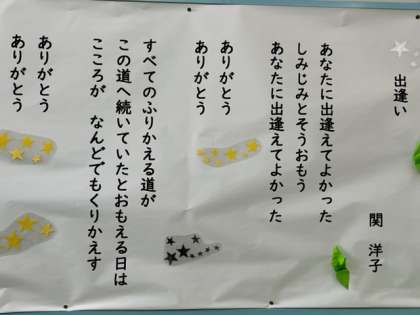 出逢い
関 洋子
あなたに出逢えてよかった
しみじみとそうおもう
あなたに出逢えてよかった
ありがとう
ありがとう
すべてのふりかえる道が
この道へ続いていたとおもえる日は
こころが なんどでもくりかえす
ありがとう
ありがとう